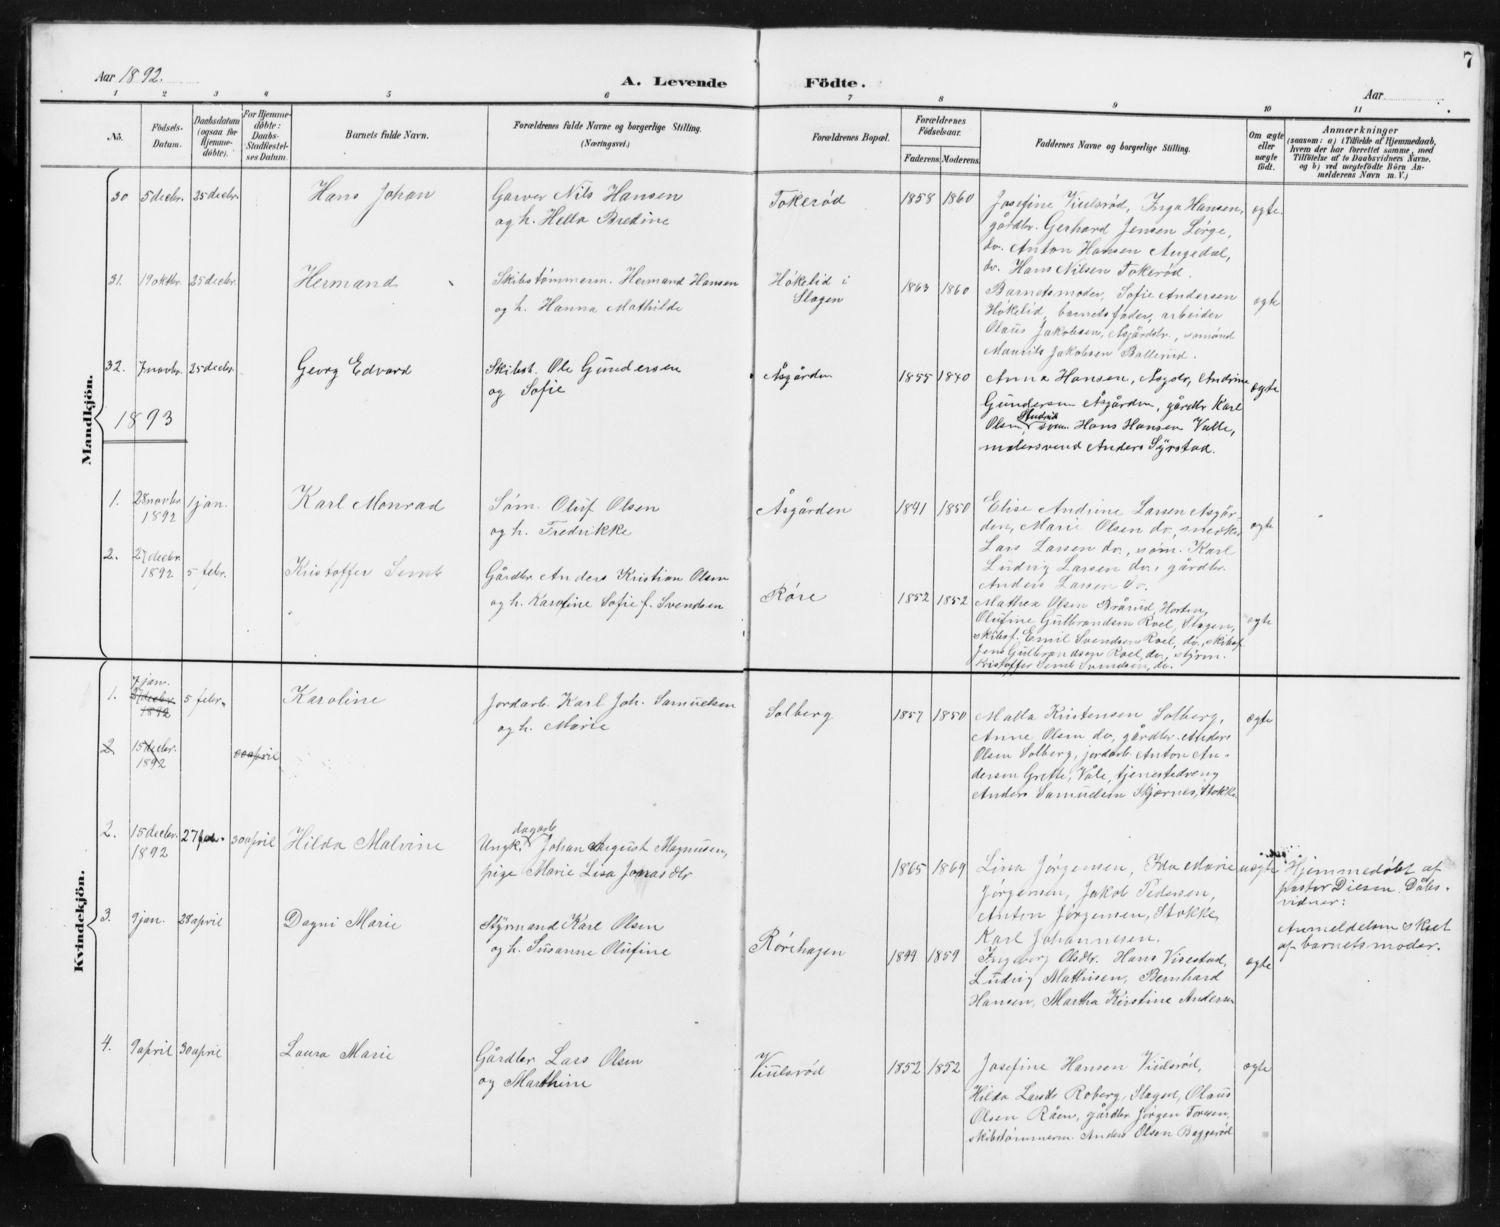 7
Aar 1892.
A. Levende Födte.
Aar
1 2 3 4 5 6 7 8 9 10 11
No.
Födsels-Datum.
Daabsdatum (ogsaa for Hjemme-döbte).
For Hjemme-döbte: Daabs-Stadfæstel-ses Datum.
Barnets fulde Navn.
Forældrenes fulde Navne og borgerlige Stilling. (Næringsvei.)
Forældrenes Bopæl.
Forældrenes Födselsaar.
Faderens. Moderens.
Faddernes Navne og borgerlige Stilling.
Om ægte eller uægte födt.
Anmærkninger
(saasom: a) i Tilfælde af Hjemmedaab,
hvem der har forrettet samme, med
Tilföielse af to Daabsvidners Navne.
og b) ved uegtefödte Börn An-
melderens Navn m. V.)
Mandkjön.
30 5 decbr. 25 decbr. Hans Johan
Garver Nils Hansen
og h. Hella Bredine
Tokerød 1858 1860
Josefine Viulsrød, Inga Hansen,
gårdbr. Gerhard Jensen Sørge,
dv. Anton Hansen Augedal,
dv. Hans Nilsen Tokerød.
ægte.
31. 19 oktbr. 25 decbr. Hermand
Skibstømmerm. Hermand Hansen
og h. Hanna Mathilde
Høkelid i
Slagen
1863 1860
Barnets moder, Sofie Andersen
Høkelid, barnets fader, arbeider
Olaus Jakobsen, Åsgårdstr., sømand
Maurits Jakobsen Ballerud.
ægte
32. 7 novbr. 25 decbr. Georg Edvard
Skibst. Ole Gundersen
og Sofie
Åsgården 1855
Anna Hansen, Åsgdr, Andrine
Gundersen Åsgården, gårdbr Karl
Olsen, Hans Hansen Valle,
malersvend Anders Syrstad.
ægte
1893
1. 28 novbr. 1892 1 jan. Karl Monrad
Søm. Oluf Olsen
og h. Fredrikke
Åsgården 1841 1850
Elise Andrine Larsen Åsgår-
den, Marie Olsen dv., snedk.
Lars Larsen dv., søm. Karl
Ludvig Larsen dv., gårdbr.
Anders Larsen dv.
ægte
2. 27 decbr. 1892 5 febr. Kristoffer Semb
Gårdbr Anders Kristian Olsen
og h. Karoline Sofie f. Svendsen
Røre 1852 1852
Mathea Olsen Brårud, Horten,
Olufine Gulbrandsen Roel, Slagen,
skibsf. Emil Svendsen Roel, dv., skibsf.
Jens Gulbrandsen Roel, dv., styrm.
Kristoffer Semb Svendsen, dv.
ægte
Kvindekjön.
1. 7 jan. 27 decbr. 1892 5 febr. Karoline
Jordarb. Karl Joh. Samuelsen
og h. Marie
Solberg 1857 1850
Malla Kristensen Solberg,
Anne Olsen dv, gårdbr. Anders
Olsen Solberg, jordarb. Anton An-
dersen Grette, Våle, tjenestedreng
Anders Samuelsen Skjærnes, Stokke
ægte
2 15 decbr. 1892 30 april
2. 15 decbr. 1892 27 30 april Hilda Malvine
dagarb.
Ungk. Johan August Magnussen,
pige Marie Lisa Jonasdtr
1865 1869
Lina Jørgensen, Ida Marie
Jørgensen, Jakob Pedersen,
Anton Jørgensen, Stokke,
Karl Johannesen.
uægte
Hjemmedøbt af
pastor Diesen. Dåbs-
vidner:
Anmeldelsen skeet
af barnets moder.
3. 9 jan. 28 april Dagni Marie
Styrmand Karl Olsen
og h. Susanne Olufine
Rørehagen 1844 1859
Ingeborg Olsdtr. Hans Visestad,
Ludvig Mathisen, Bernhard
Hansen, Martha Kirstine Andersen
ægte
4. 9 april 30 april Laura Marie
Gårdbr Lars Olsen
og Marthine
Viulsrød 1852 1852
Josefine Hansen Viulsrød,
Hilda Larsdtr Roberg, Slagen, Olaus
Olsen Råen, gårdbr Jørgen Toresen,
skibstømmerm. Anders Olsen Baggerød
ægte